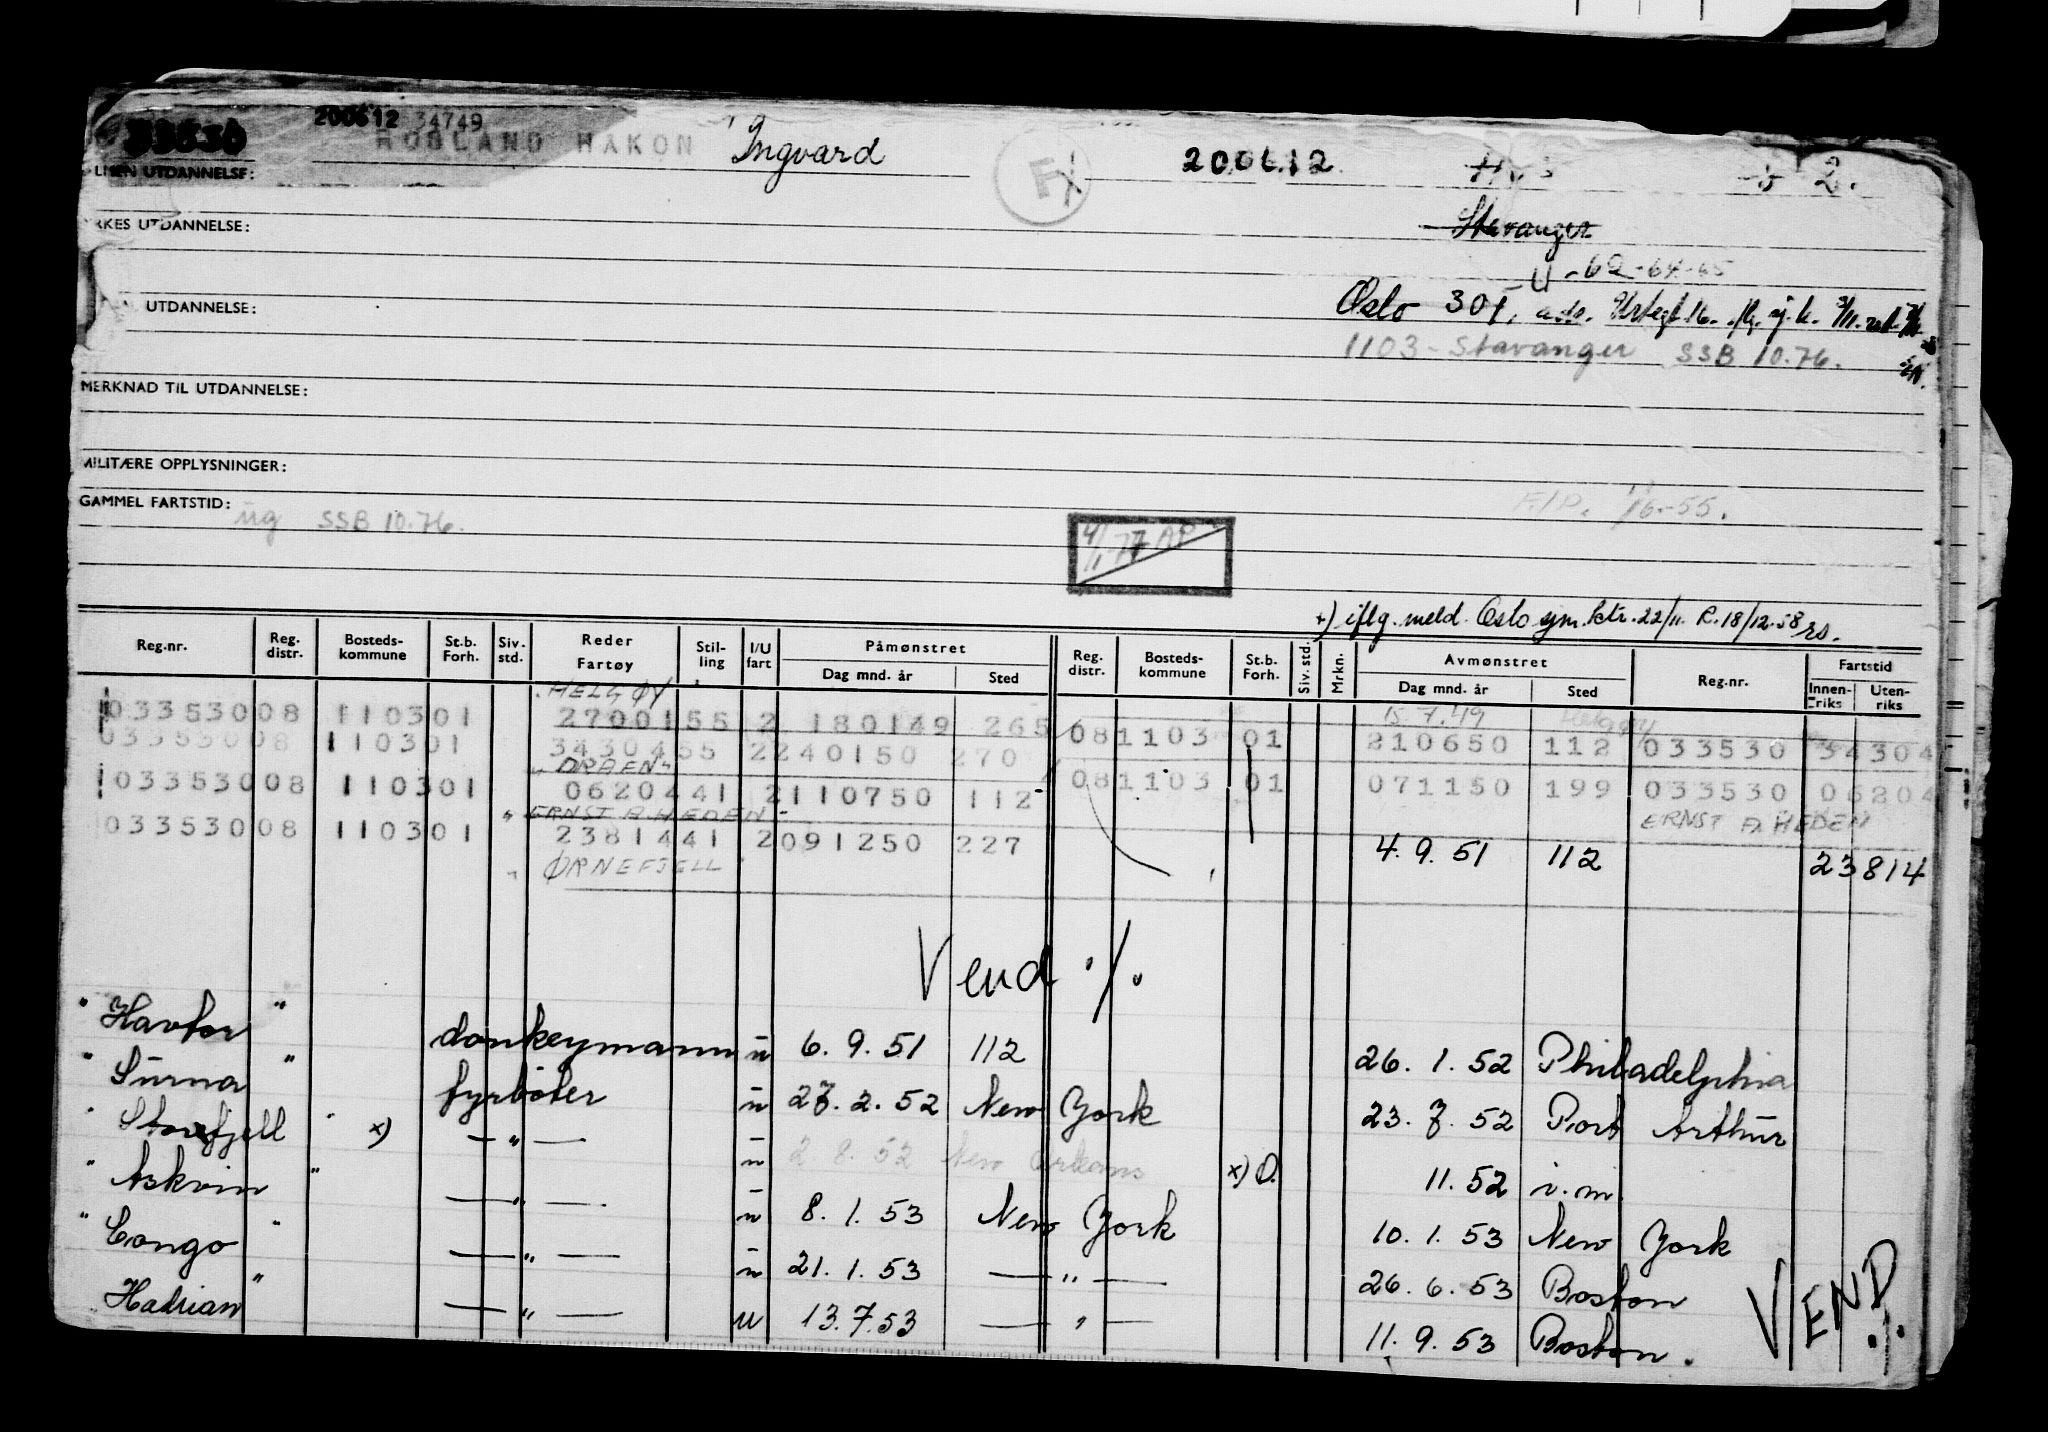 33530 200612 34749
ROBLAND HAKON Ingvard F 200612 2.
UTDANNELSE:
RKES UTDANNELSE: Stavanger
U -62-64-65
UTDANNELSE: Oslo 301, adr.
1103 - Stavanger SSB 10.76.
MERKNAD TIL UTDANNELSE:
MILITÆRE OPPLYSNINGER:
GAMMEL FARTSTID: ug SSB 10.76. 1/6-55.
4/1-77 AP
x) iflg. meld. Oslo sjm. ktr. 22/11 R. 18/12-58 rs.
Reg.nr. Reg. distr. Bosteds-kommune St.b. Forh. Siv. std. Reder Fartøy Stil-ling I/U fart Påmønstret Dag mnd. år Sted Reg. distr. Bosteds-kommune St.b. Forh. Siv. std. Mrkn. Avmønstret Dag mnd. år Sted Reg.nr. Fartstid Innen-riks Uten-riks
HELGØY 15.7.49 Helgøy
03353008 110301 2700155 2 180149 265
03353008 110301 3430455 2240150 270 081103 01 210650 112 033530 34304
"ORAEN"
03353008 110301 0620441 2110750 112 081103 01 071150 199 033530 06204
"ERNST R. HEDEN" ERNST R. HEDEN
03353008 110301 2381441 2091250 227 4.9.51 112 23814
" ØRNEFJELL "
Vend ./.
" Havtor " donkeymann u 6.9.51 112 26.1.52 Philadelphia
" Surna " fyrbøter u 27.2.52 New York 23.7.52 Port Arthur
" Storfjell " x) — " — u 2.8.52 New Orleans x) O. 11.52 i.m.
" Askvin " — " — u 8.1.53 New York 10.1.53 New York
" Congo " — " — u 21.1.53 — " — 26.6.53 Boston
Hadrian " — " — u 13.7.53 — " — 11.9.53 Boston.
VEND ./.